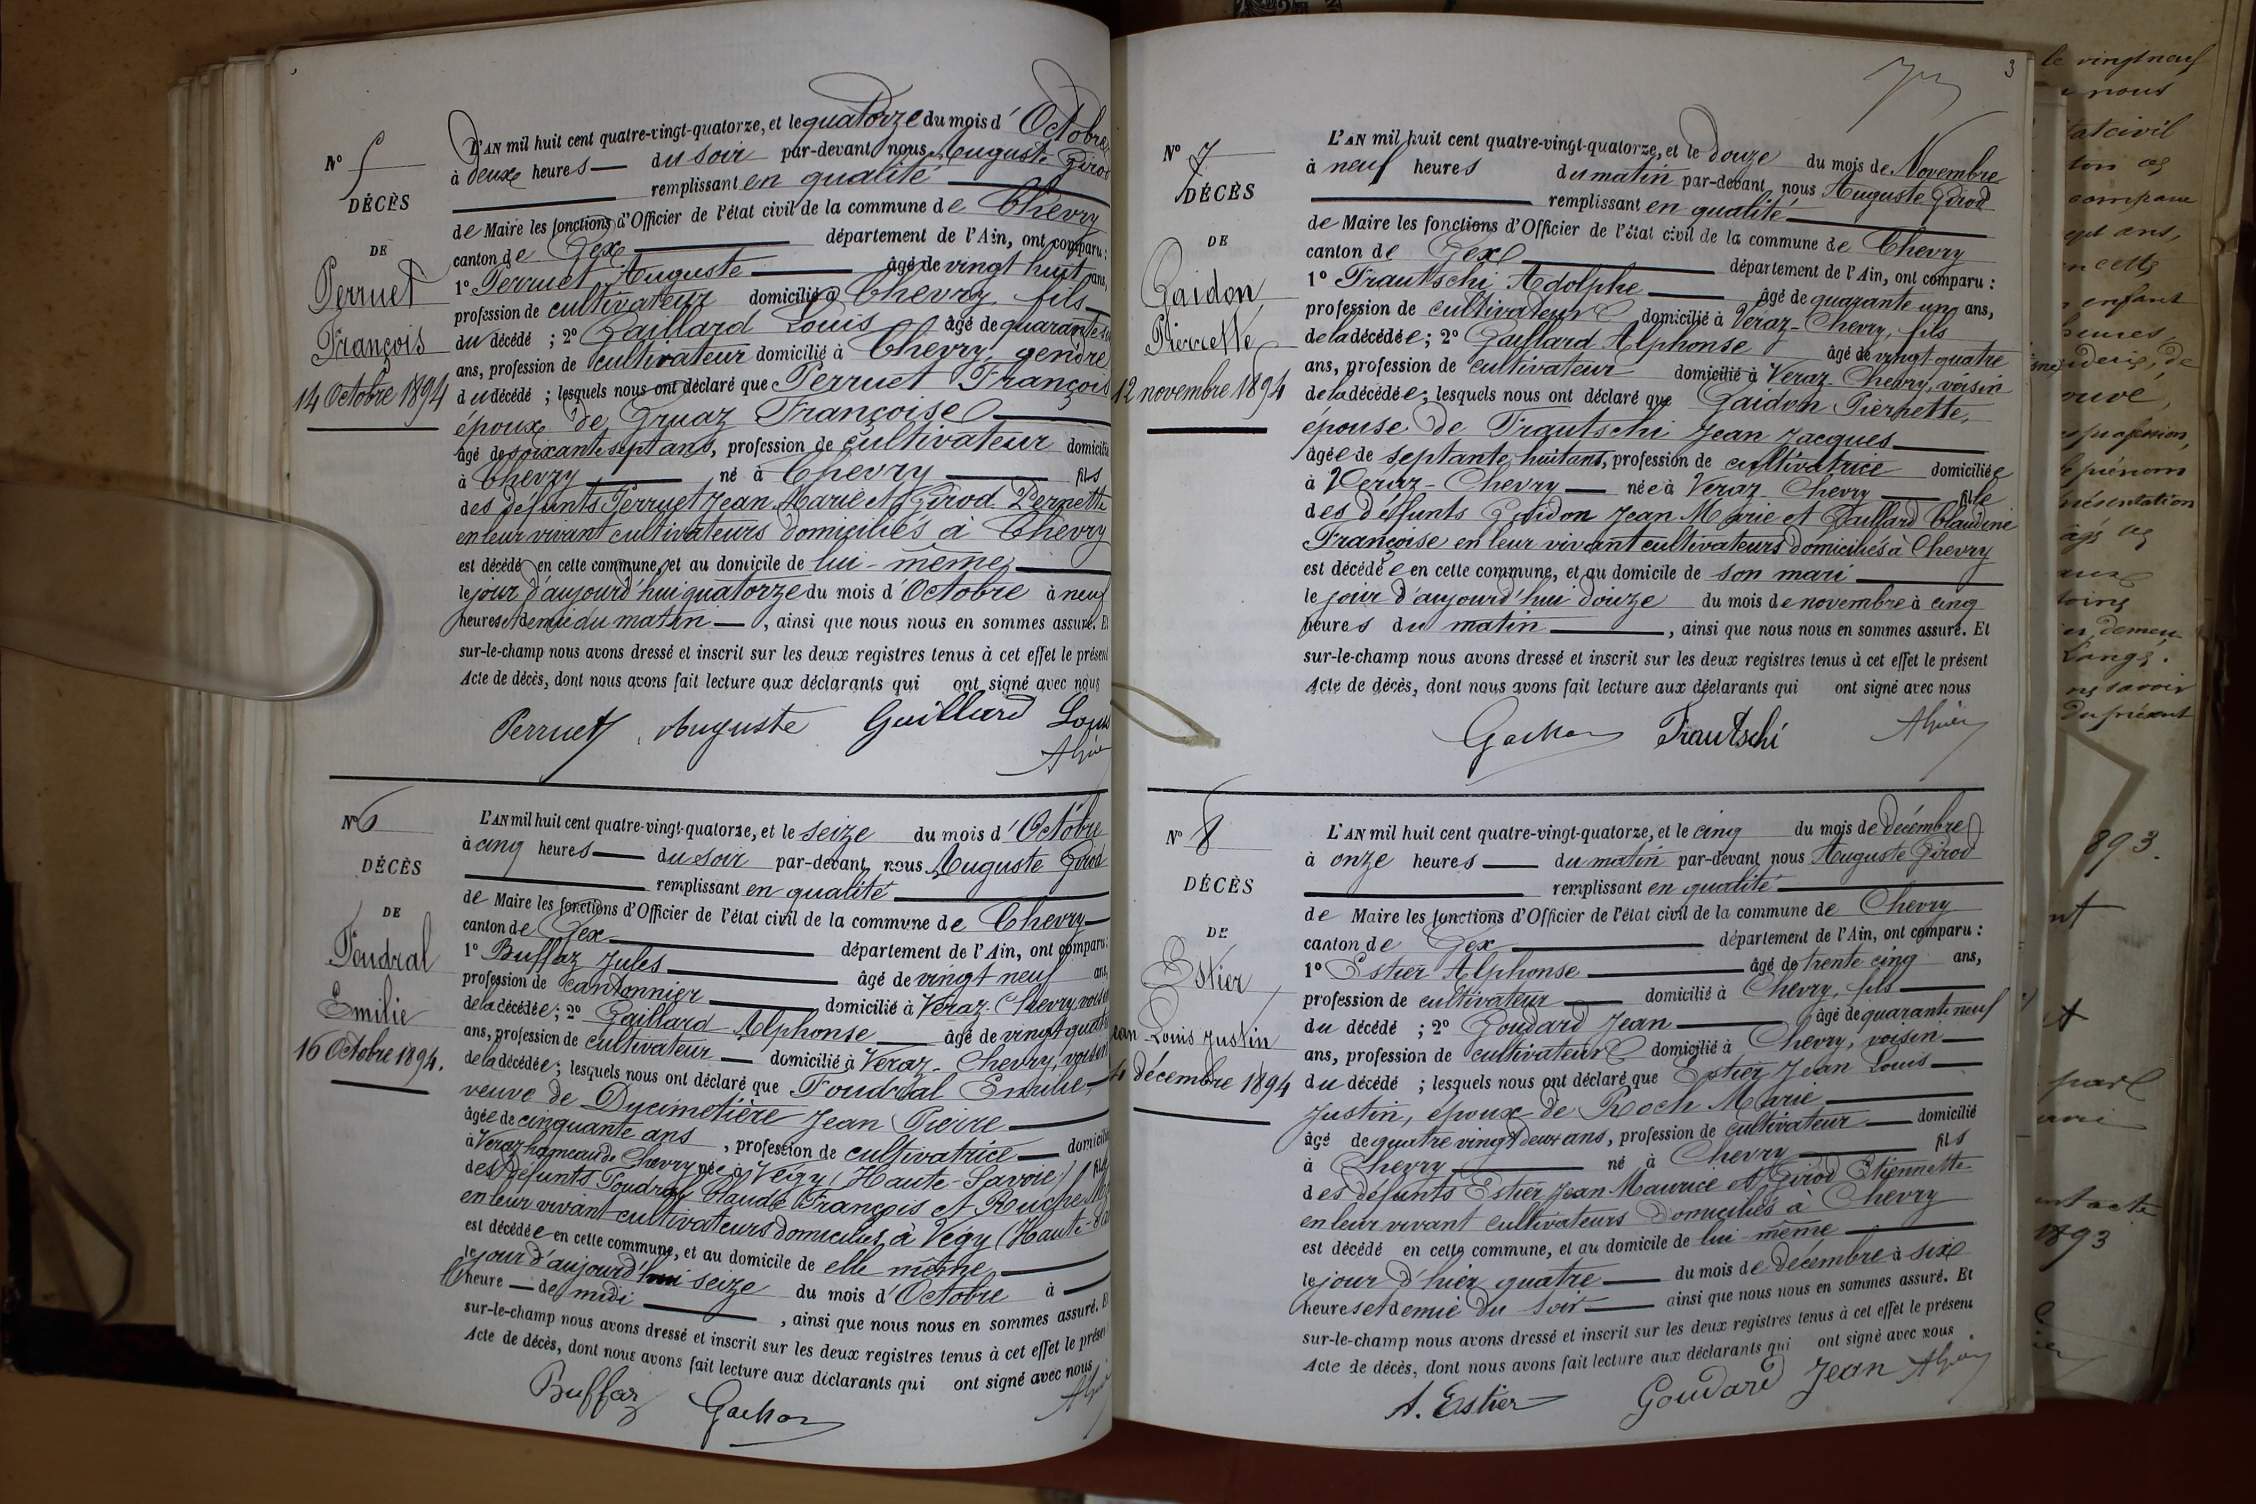 N° 5
DÉCÈS
DE
Perruet
François
14 Octobre 1894
L'AN mil huit cent quatre-vingt-quatorze, et le quatorze du mois d'Octobre
à deux heures du soir par-devant nous Auguste Girod
remplissant en qualité
de Maire les fonctions d'Officier de l'état civil de la commune de Chevry
canton de Gex département de l'Ain, ont comparu :
1° Perruet Auguste âgé de vingt huit ans,
profession de cultivateur domicilié à Chevry, fils
du décédé ; 2° Gaillard Louis âgé de quarante
ans, profession de cultivateur domicilié à Chevry, gendre
du décédé ; lesquels nous ont déclaré que Perruet François
époux de Gruaz Françoise
âgé de soixante sept ans, profession de cultivateur domicilié
à Chevry né à Chevry fils
des défunts Perruet Jean Marie et Girod Pernette
en leur vivant cultivateurs domiciliés à Chevry
est décédé en cette commune, et au domicile de lui-même
le jour d'aujourd'hui quatorze du mois d'Octobre à neuf
heures et demie du matin, ainsi que nous nous en sommes assuré. Et
sur-le-champ nous avons dressé et inscrit sur les deux registres tenus à cet effet le présent
Acte de décès, dont nous avons fait lecture aux déclarants qui ont signé avec nous
Perruet Auguste Gaillard Louis
N° 6
DÉCÈS
DE
Foudral
Emilie
16 Octobre 1894.
L'AN mil huit cent quatre-vingt-quatorze, et le seize du mois d'Octobre
à cinq heures du soir par-devant nous Auguste Girod
remplissant en qualité
de Maire les fonctions d'Officier de l'état civil de la commune de Chevry
canton de Gex département de l'Ain, ont comparu :
1° Buffaz Jules âgé de vingt neuf ans,
profession de cantonnier domicilié à Veraz-Chevry, voisin
de la décédée ; 2° Gaillard Alphonse âgé de vingt quatre
ans, profession de cultivateur domicilié à Veraz-Chevry, voisin
de la décédée ; lesquels nous ont déclaré que Foudral Emilie
veuve de Ducimetière Jean Pierre
âgée de cinquante ans, profession de cultivatrice domiciliée
à Veraz hameau de Chevry née à Veigy (Haute-Savoie) fille
des défunts Foudral Claude François et
en leur vivant cultivateurs domiciliés à Végy (Haute-
est décédée en cette commune, et au domicile de elle même
le jour d'aujourd'hui seize du mois d'Octobre à
heure de midi, ainsi que nous nous en sommes assuré. Et
sur-le-champ nous avons dressé et inscrit sur les deux registres tenus à cet effet le présent
Acte de décès, dont nous avons fait lecture aux déclarants qui ont signé avec nous
Buffaz
3
N° 7
DÉCÈS
DE
Gaidon
Pierrette
12 novembre 1894
L'AN mil huit cent quatre-vingt-quatorze, et le douze du mois de Novembre
à neuf heures du matin par-devant nous Auguste Girod
remplissant en qualité
de Maire les fonctions d'Officier de l'état civil de la commune de Chevry
canton de Gex département de l'Ain, ont comparu :
1° Frautschi Adolphe âgé de quarante un ans,
profession de cultivateur domicilié à Veraz-Chevry, fils
de la décédée ; 2° Gaillard Alphonse âgé de vingt quatre
ans, profession de cultivateur domicilié à Veraz-Chevry, voisin
de la décédée ; lesquels nous ont déclaré que Gaidon Pierrette,
épouse de Frautschi Jean Jacques
âgée de septante huit ans, profession de cultivatrice domiciliée
à Veraz-Chevry née à Veraz Chevry fille
des défunts Gaidon Jean Marie et Gaillard Claudine
Françoise en leur vivant cultivateurs domiciliés à Chevry
est décédée en cette commune, et au domicile de son mari
le jour d'aujourd'hui douze du mois de novembre à cinq
heures du matin, ainsi que nous nous en sommes assuré. Et
sur-le-champ nous avons dressé et inscrit sur les deux registres tenus à cet effet le présent
Acte de décès, dont nous avons fait lecture aux déclarants qui ont signé avec nous
Frautschi
N° 8
DÉCÈS
DE
Estier
Jean Louis Justin
4 décembre 1894
L'AN mil huit cent quatre-vingt-quatorze, et le cinq du mois de décembre
à onze heures du matin par-devant nous Auguste Girod
remplissant en qualité
de Maire les fonctions d'Officier de l'état civil de la commune de Chevry
canton de Gex département de l'Ain, ont comparu :
1° Estier Alphonse âgé de trente cinq ans,
profession de cultivateur domicilié à Chevry, fils
du décédé ; 2° Goudard Jean âgé de quarante neuf
ans, profession de cultivateur domicilié à Chevry, voisin
du décédé ; lesquels nous ont déclaré que Estier Jean Louis
Justin, époux de Roch Marie
âgé de quatre vingt deux ans, profession de cultivateur domicilié
à Chevry né à Chevry fils
des défunts Estier Jean Maurice et Girod Etiennette
en leur vivant cultivateurs domiciliés à Chevry
est décédé en cette commune, et au domicile de lui même
le jour d'hier quatre du mois de décembre à six
heures et demie du soir ainsi que nous nous en sommes assuré. Et
sur-le-champ nous avons dressé et inscrit sur les deux registres tenus à cet effet le présent
Acte de décès, dont nous avons fait lecture aux déclarants qui ont signé avec nous.
A. Estier Goudard Jean
le vingt neuf
nous
état civil
enfant
heures
profession,
prénom
présentation
893.
1893